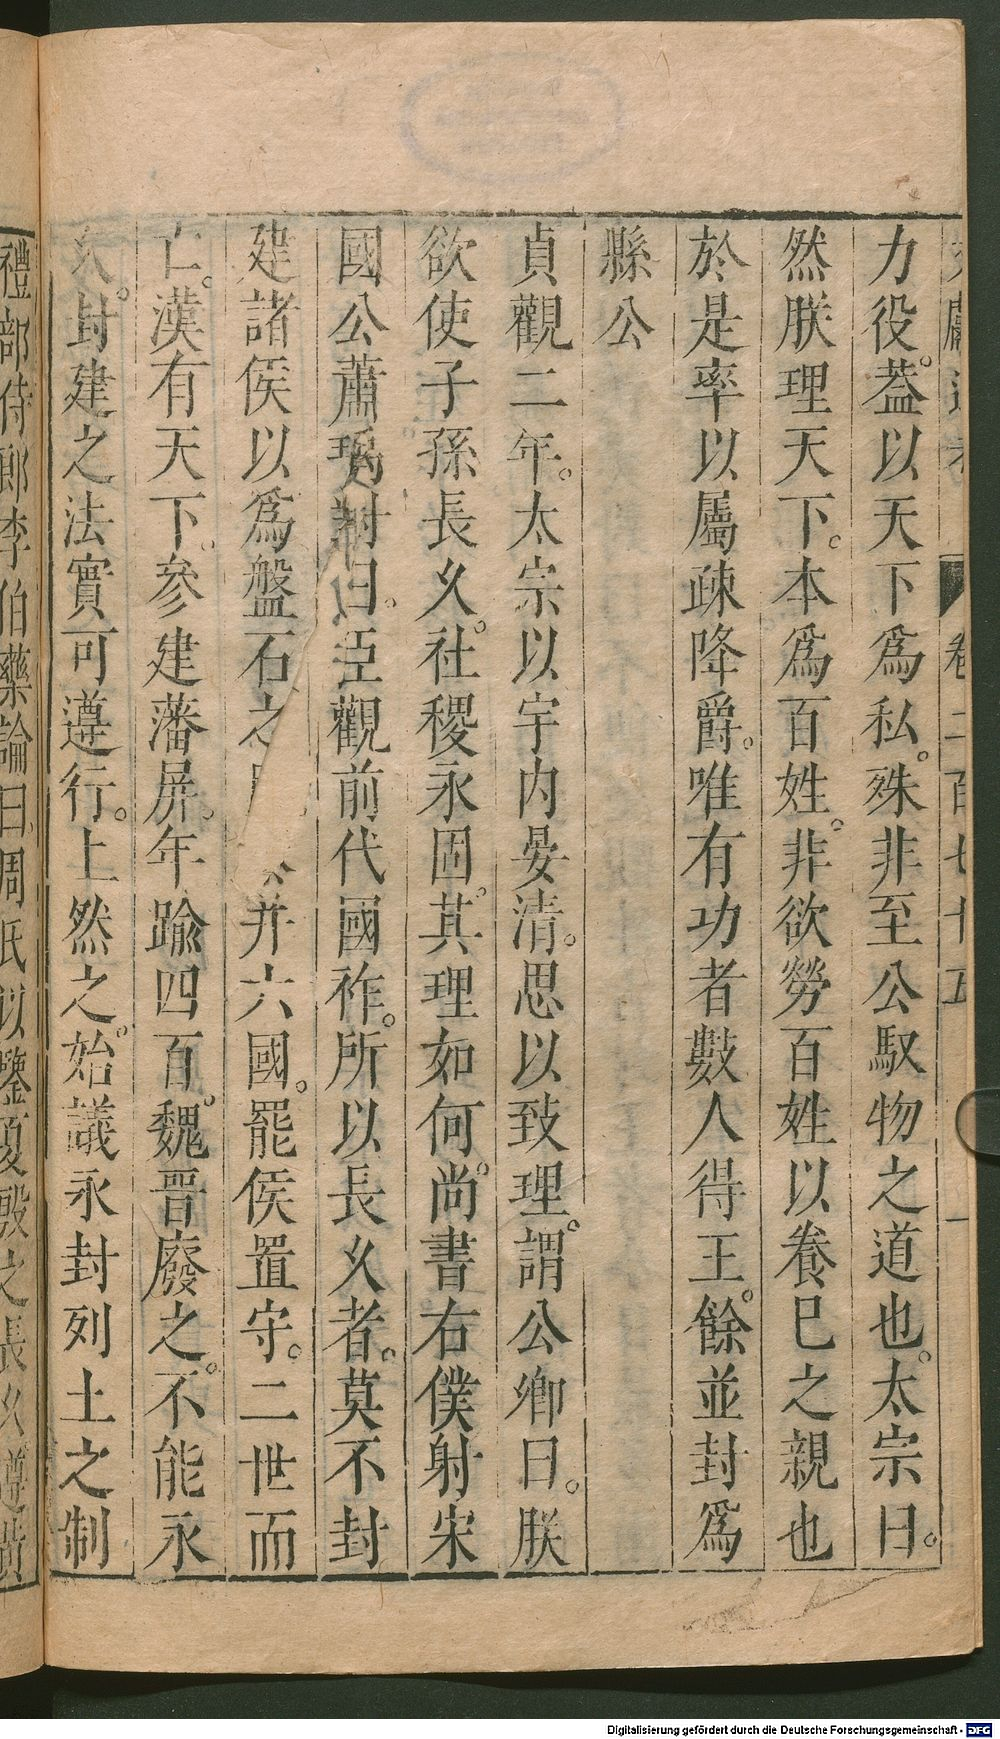 文獻通考 卷二百七十五 一
力役。葢以天下爲私。殊非至公馭物之道也。太宗曰。
然朕理天下。本爲百姓。非欲勞百姓以養巳之親也
於是率以屬疎降爵。唯有功者數人得王。餘並封爲
縣公
貞觀二年。太宗以宇内晏清。思以致理。謂公卿曰。朕
欲使子孫長乆。社稷永固。其理如何。尚書右僕射宋
國公蕭瑀對曰。臣觀前代國祚。所以長乆者。莫不封
建諸侯以爲盤石之 并六國。罷侯置守。二世而
亡。漢有天下。參建藩屏。年踰四百。魏晋廢之。不能永
乆。封建之法實可遵行。上然之。始議永封列土之制
禮部侍郎李伯藥論曰。周氏以鑒夏殷之長乆遵黃
Digitalisierung gefördert durch die Deutsche Forschungsgemeinschaft - DFG